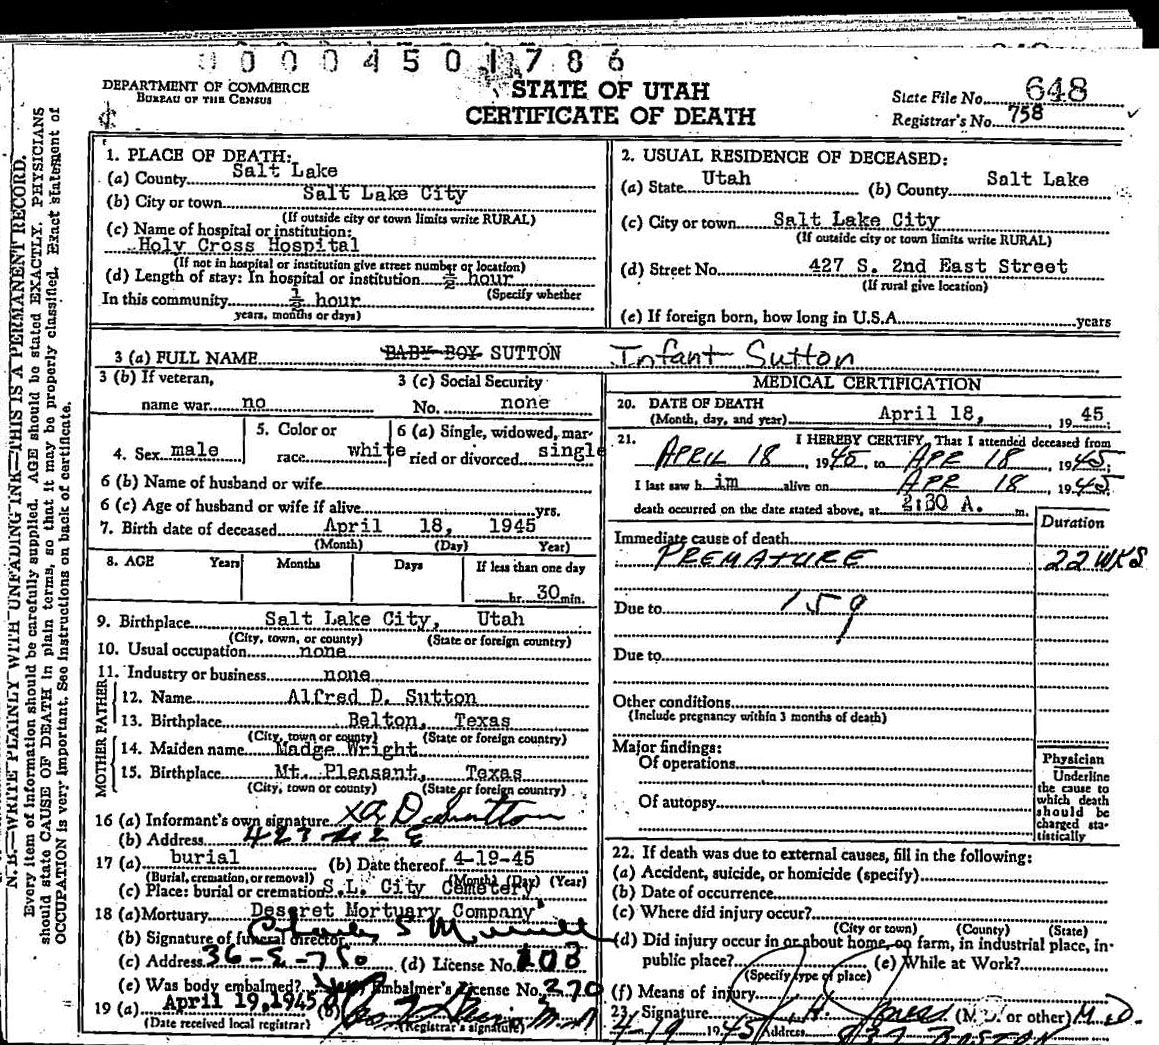 0 0 0 0 4 5 0 1 7 8 6
DEPARTMENT OF COMMERCE
BUREAU OF THE CENSUS
STATE OF UTAH
CERTIFICATE OF DEATH
State File No. 648
Registrar's No. 758
N. B.—WRITE PLAINLY WITH UNFADING INK—THIS IS A PERMANENT RECORD.
Every item of information should be carefully supplied. AGE should be stated EXACTLY. PHYSICIANS
should state CAUSE OF DEATH in plain terms, so that it may be properly classified. Exact statement of
OCCUPATION is very important. See instructions on back of certificate.
1. PLACE OF DEATH:
(a) County Salt Lake
(b) City or town Salt Lake City
(If outside city or town limits write RURAL)
(c) Name of hospital or institution:
Holy Cross Hospital
(If not in hospital or institution give street number or location)
(d) Length of stay: In hospital or institution ½ hour
(Specify whether
In this community ½ hour
years, months or days)
2. USUAL RESIDENCE OF DECEASED:
(a) State Utah (b) County Salt Lake
(c) City or town Salt Lake City
(If outside city or town limits write RURAL)
(d) Street No. 427 S. 2nd East Street
(If rural give location)
(e) If foreign born, how long in U.S.A. years
3 (a) FULL NAME BABY BOY SUTTON Infant Sutton
3 (b) If veteran,
name war no
3 (c) Social Security
No. none
4. Sex male
5. Color or
race white
6 (a) Single, widowed, mar-
ried or divorced single
6 (b) Name of husband or wife
6 (c) Age of husband or wife if alive yrs.
7. Birth date of deceased April 18, 1945
(Month) (Day) Year)
8. AGE Years Months Days If less than one day
hr. 30 min.
9. Birthplace Salt Lake City, Utah
(City, town, or county) (State or foreign country)
10. Usual occupation none
11. Industry or business none
FATHER
12. Name Alfred D. Sutton
13. Birthplace Belton, Texas
(City, town or county) (State or foreign country)
MOTHER
14. Maiden name Madge Wright
15. Birthplace Mt. Pleasant, Texas
(City, town or county) (State or foreign country)
16 (a) Informant's own signature x A D Sutton
(b) Address 427 2 E
17 (a) burial (b) Date thereof 4-19-45
(Burial, cremation, or removal) (Month) (Day) (Year)
(c) Place: burial or cremation S.L. City Cemetery
18 (a) Mortuary Deseret Mortuary Company
(b) Signature of funeral director Charles S
(c) Address 36-E-7 So (d) License No. 103
(e) Was body embalmed? Embalmer's License No. 270
19 (a) April 19, 1945 (b) M.D
(Date received local registrar) (Registrar's signature)
MEDICAL CERTIFICATION
20. DATE OF DEATH
(Month, day, and year) April 18, 19 45
21. I HEREBY CERTIFY, That I attended deceased from
APRIL 18, 1945, to APR 18, 1945;
I last saw h im alive on APR 18, 1945
death occurred on the date stated above, at 2:30 A. m.
Duration
Immediate cause of death
PREMATURE 22 WKS
Due to 159
Due to
Other conditions
(Include pregnancy within 3 months of death)
Major findings:
Of operations
Of autopsy
Physician
Underline
the cause to
which death
should be
charged sta-
tistically
22. If death was due to external causes, fill in the following:
(a) Accident, suicide, or homicide (specify)
(b) Date of occurrence
(c) Where did injury occur?
(City or town) (County) (State)
(d) Did injury occur in or about home, on farm, in industrial place, in-
public place? (e) While at Work?
(Specify type of place)
(f) Means of injury
23. Signature Jones (M. D. or other) M.D.
4-19 1945 Address